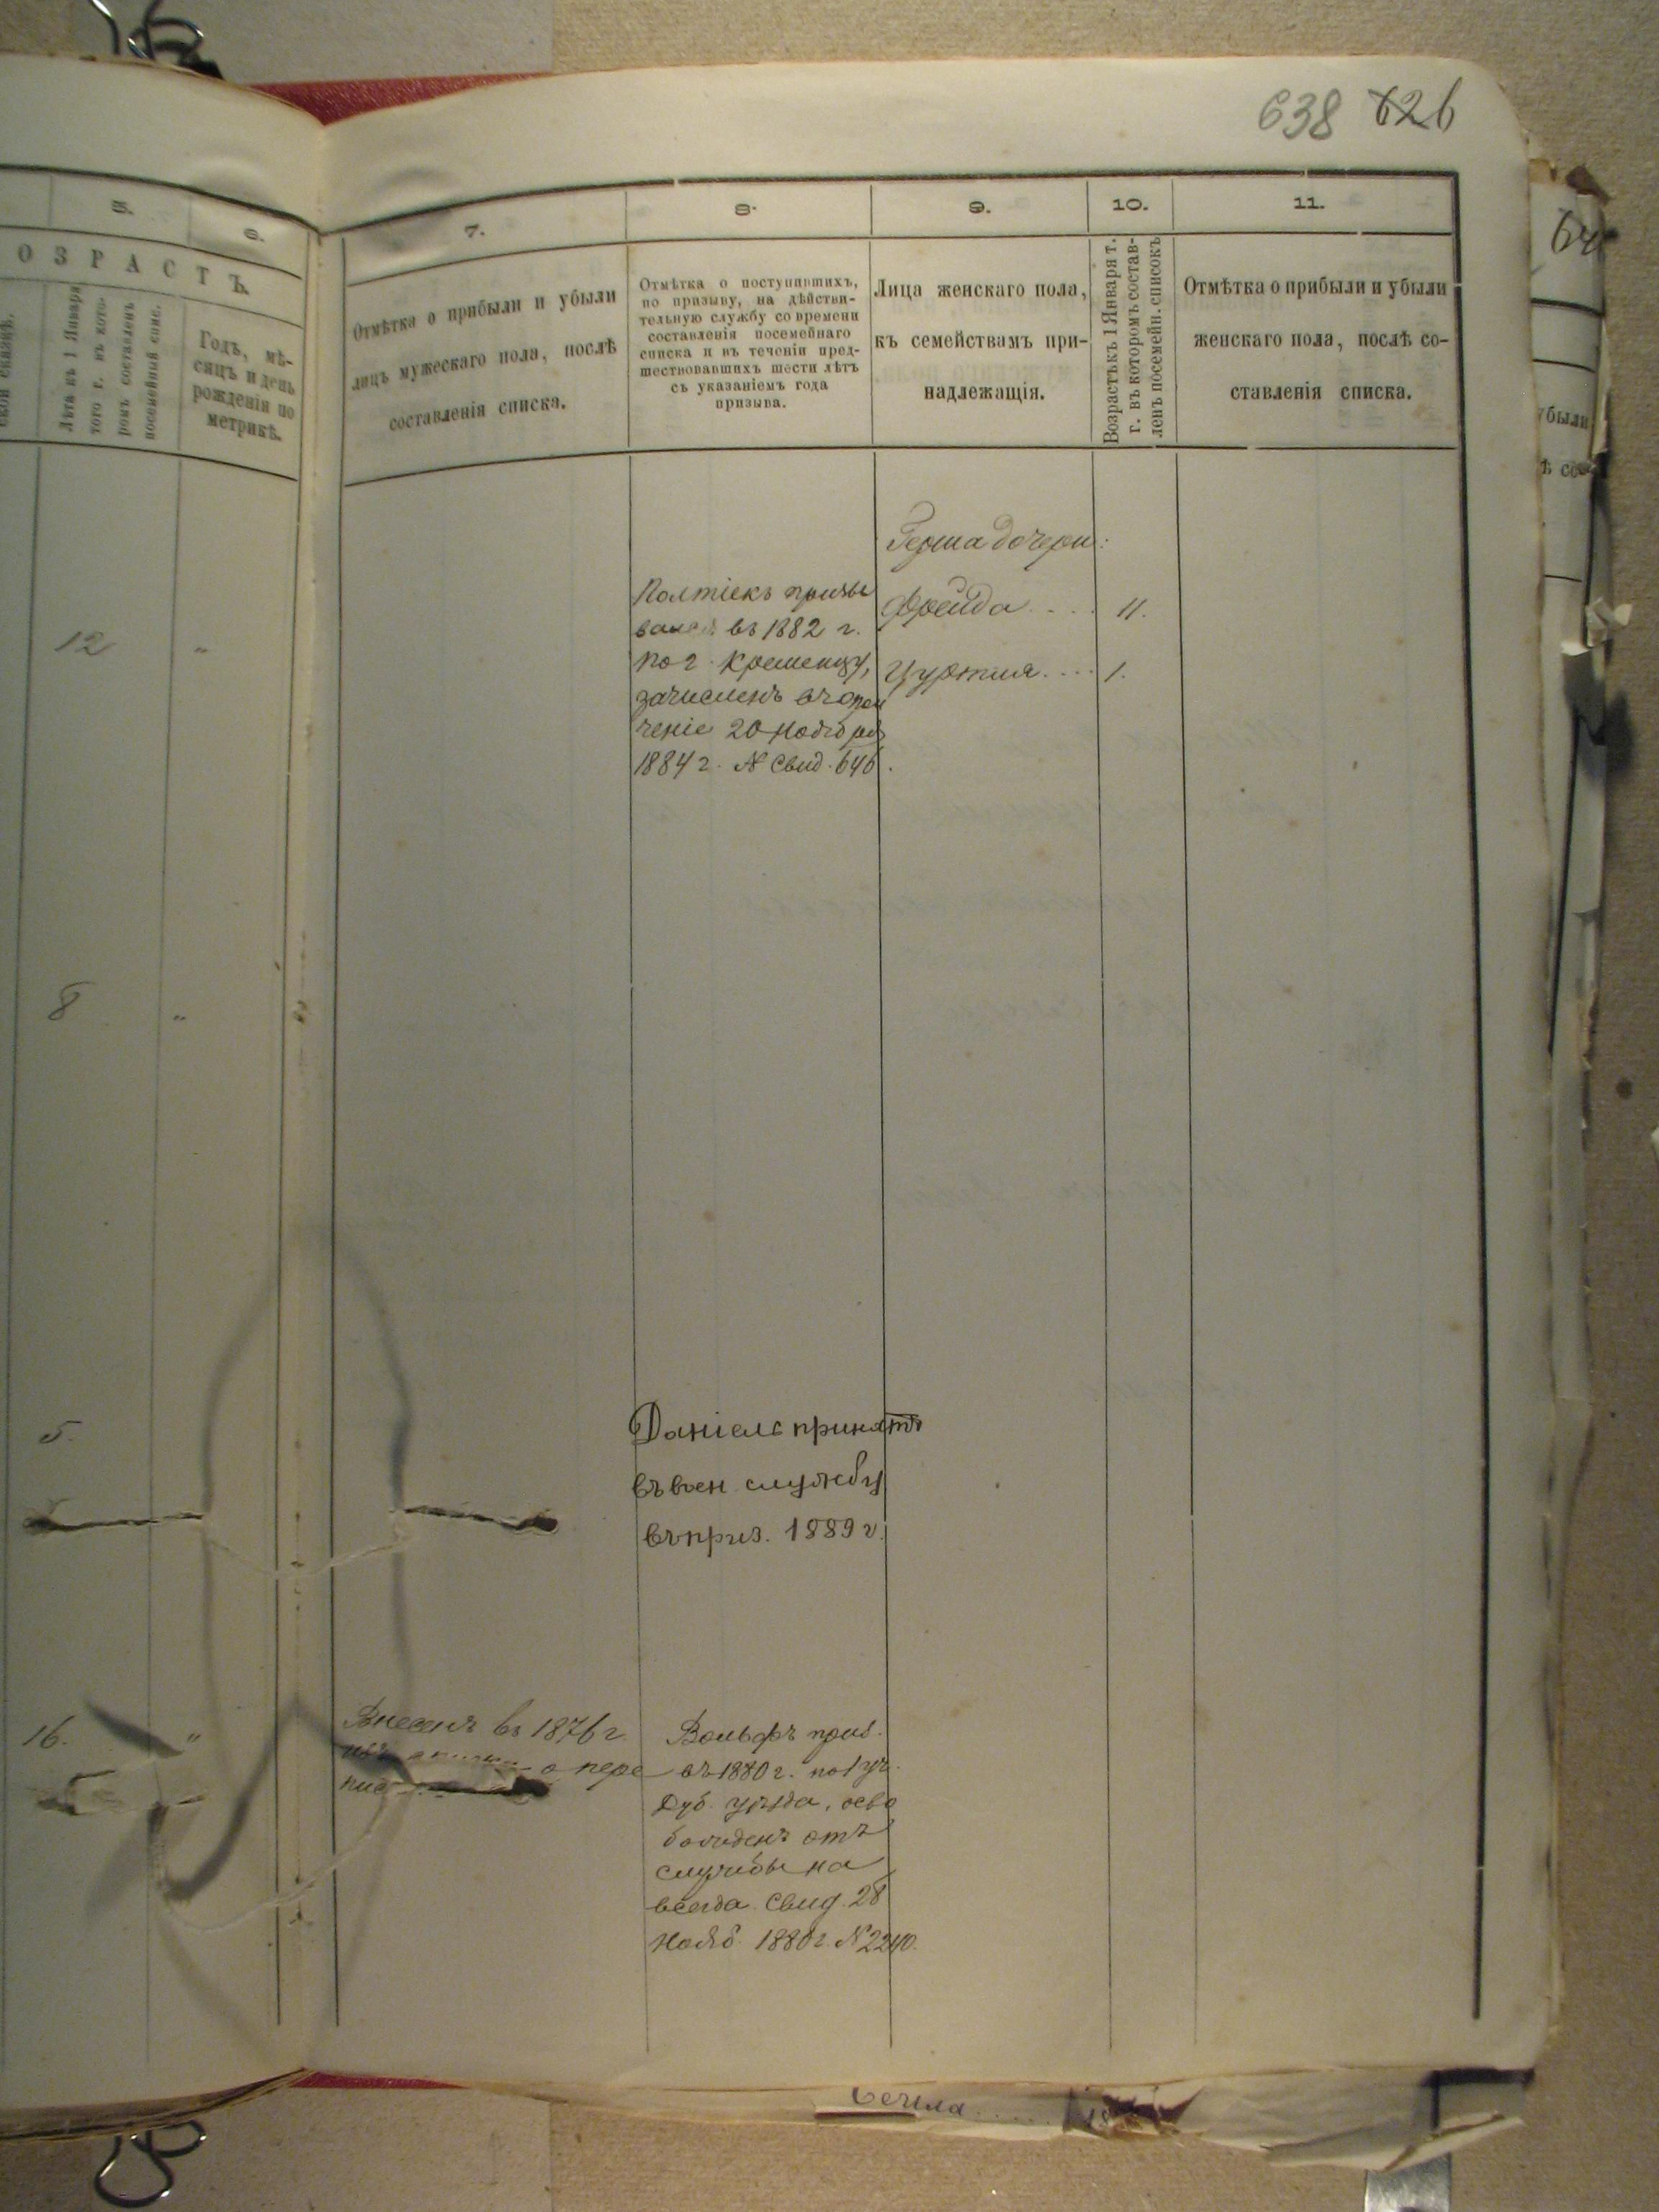 638 626
5.
6.
ОЗРАСТЪ.
Лѣта къ 1 Января
того г. въ кото-
ромъ составленъ
посемейный спис.
Годъ, мѣ-
сяцъ и день
рожденія по
метрикѣ.
12 "
8 "
5.
16. "
7.
8.
9.
10.
11.
Отмѣтка о прибыли и убыли
лицъ мужескаго пола, послѣ
составленія списка.
Отмѣтка о поступившихъ,
по призыву, на дѣйстви-
тельную службу со времени
составленія посемейнаго
списка и въ теченіи пред-
шествовавшихъ шести лѣтъ
съ указаніемъ года
призыва.
Лица женскаго пола,
къ семействамъ при-
надлежащія.
Возрастъ къ 1 Января т.
г. въ которомъ состав-
ленъ посемейн. списокъ
Отмѣтка о прибыли и убыли
женскаго пола, послѣ со-
ставленія списка.
Внесенъ въ 1876 г.
о пере
призы
вался въ 1882 г.
по г. Кременцу,
зачисленъ въ опол
ченіе 20 Ноября
1884 г. № свид. 646.
Даніель принятъ
въ воен службу
въ приз. 1889 г.
Вольфъ приз.
въ 1880 г. по 1 уч.
Дуб. уѣзда, осво
божденъ отъ
службы на
всегда. Свид. 28
Нояб. 1880 г. № 2240.
Герша дочери:
Фрейда .... 11.
.... 1.
были
ѣ со